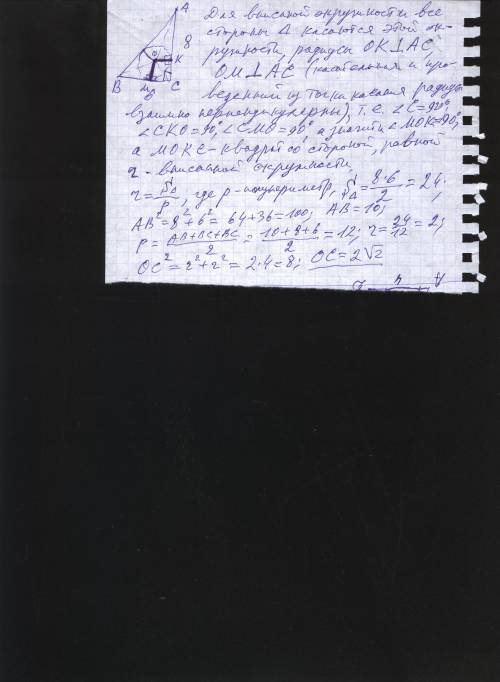 A
8
K
B
M
6
C
O
Для вписаной окружности все
стороны Δ касаются этой ок-
ружности, радиусы OK⊥AC,
OM⊥AC (касательная и про-
веденный из точки касания радиусы
взаимно перпендикулярны), т.е. ∠C=90°,
∠CKO=90°, ∠CMO=90°, а значит и ∠MOK=90°,
а MOKC-квадрат со стороной, равной
r - вписанной окружности.
r=SΔ/p, где p-полупериметр, SΔ=8·6/2=24;
AB²=8²+6²=64+36=100; AB=10;
P=AB+BC+BC/2=10+8+6/2=12; r=24/12=2;
OC²=r²+r²=2·4=8; OC=2√2